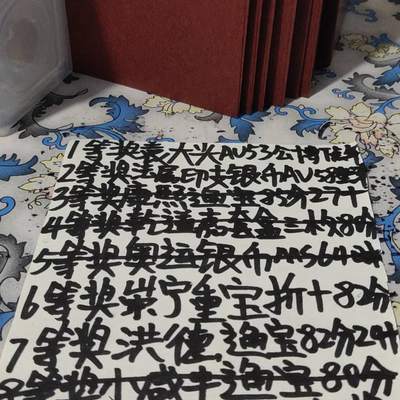 1等奖袁大头AU53公博
2等奖法属印支银币AU58
3等奖康熙通宝85分27
4等奖乾道套盒三枚80分
5等奖奥运银币MS64
6等奖崇宁重宝折十82分
7等奖洪德通宝82分24
8等奖大咸丰通宝80分